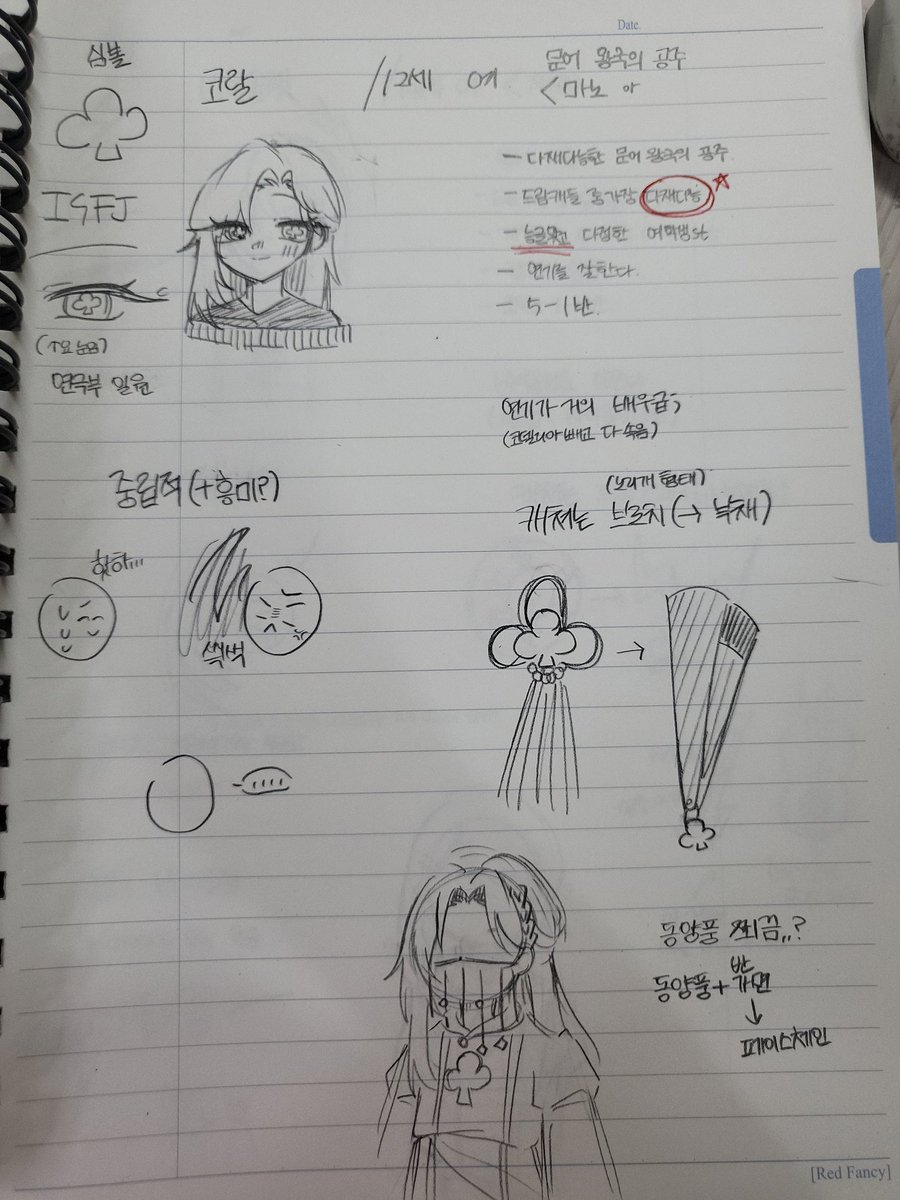 Date.
심볼
코랄 /12세 여
문어 왕국의 공주
< 마노 아
ISFJ
- 다재다능한 문어 왕국의 공주
- 드림캐들 중 가장 다재다능
- 능글맞고 다정한
- 연기를 잘한다.
- 5-1반.
연극부 일원
연기가 거의 배우급;
(코델리아 빼고 다 속음)
중립적 (+흥미?)
(노리개 형태)
캐체는 브로치 (→ 부채)
핫하...
씩씩
→
....
동양풍 쬐끔..?
동양풍 + 반가면
↓
페이스체인
[Red Fancy]